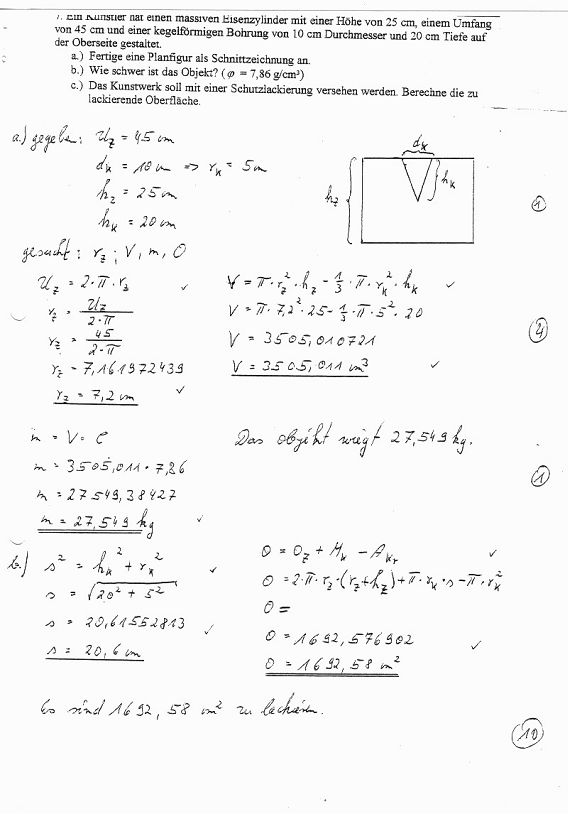 7. Ein Künstler hat einen massiven Eisenzylinder mit einer Höhe von 25 cm, einem Umfang
von 45 cm und einer kegelförmigen Bohrung von 10 cm Durchmesser und 20 cm Tiefe auf
der Oberseite gestaltet.
a.) Fertige eine Planfigur als Schnittzeichnung an.
b.) Wie schwer ist das Objekt? (φ = 7,86 g/cm³)
c.) Das Kunstwerk soll mit einer Schutzlackierung versehen werden. Berechne die zu
lackierende Oberfläche.
a.) gegeben: U_z = 45 cm
d_k = 10 cm => r_k = 5 cm
h_z = 25 cm
h_k = 20 cm
d_k
h_k
h_z
1
gesucht: r_z ; V, m, O
U_z = 2·π·r_z ✓
r_z = U_z / 2·π
r_z = 45 / 2·π
r_z = 7,161972439
r_z = 7,2 cm ✓
V = π·r_z²·h_z - 1/3·π·r_k²·h_k ✓
V = π·7,2²·25 - 1/3·π·5²·20
V = 3505,010721
V = 3505,011 cm³ ✓
4
m = V·ρ
m = 3505,011·7,86
m = 27549,38427
m = 27,549 kg ✓
Das Objekt wiegt 27,549 kg.
1
b.) s² = h_k² + r_k² ✓
s = √20² + 5²
s = 20,61552813 ✓
s = 20,6 cm
O = O_z + M_k - A_kr ✓
O = 2·π·r_z·(r_z+h_z)+π·r_k·s-π·r_k²
O =
O = 1692,576902 ✓
O = 1692,58 cm²
Es sind 1692,58 cm² zu lackieren.
10